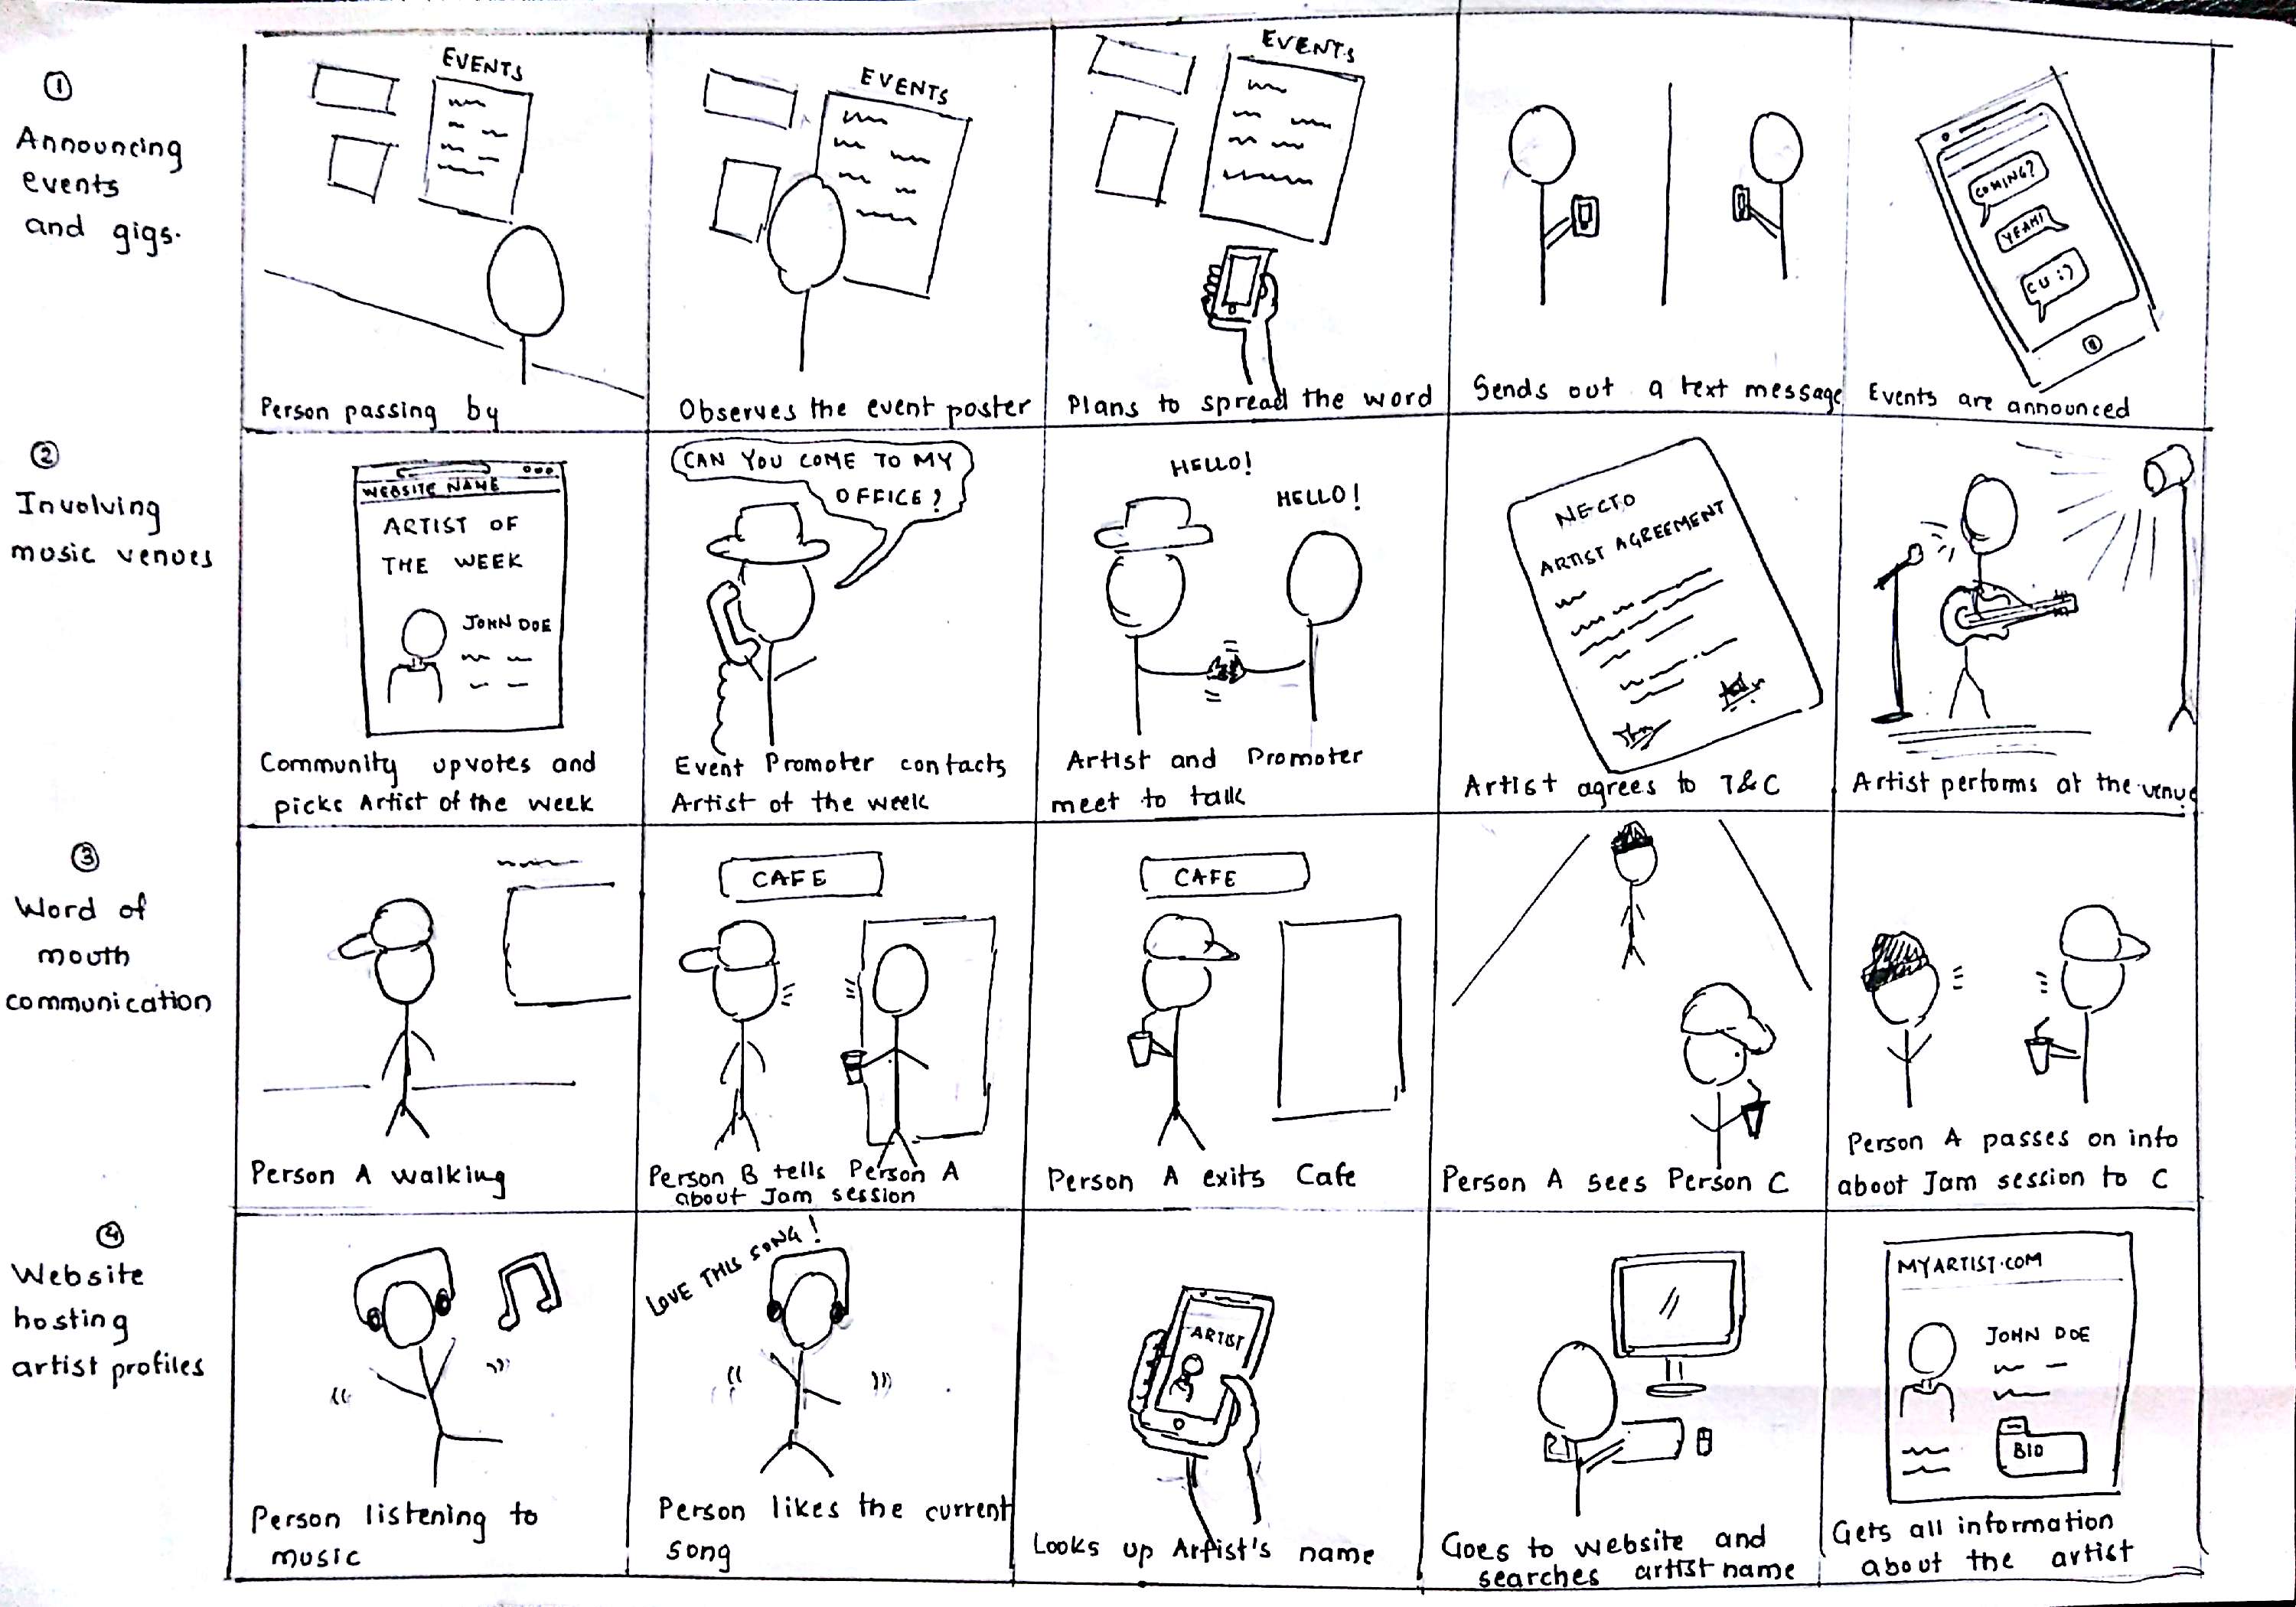 ①
Announcing
events
and gigs.
EVENTS
Person passing by
EVENTS
Observes the event poster
EVENTS
Plans to spread the word
Sends out a text message
COMING?
YEAH!
CU :)
Events are announced
②
Involving
music venues
WEBSITE NAME
ARTIST OF
THE WEEK
JOHN DOE
Community upvotes and
picks Artist of the week
CAN YOU COME TO MY
OFFICE?
Event Promoter contacts
Artist of the week
HELLO!
HELLO!
Artist and Promoter
meet to talk
NECTO
ARTIST AGREEMENT
Artist agrees to T&C
Artist performs at the venue
③
Word of
mouth
communication
Person A walking
CAFE
Person B tells Person A
about Jam session
CAFE
Person A exits Cafe
Person A sees Person C
Person A passes on info
about Jam session to C
④
Website
hosting
artist profiles
Person listening to
music
LOVE THIS SONG!
Person likes the current
song
ARTIST
Looks up Artist's name
Goes to website and
searches artist name
MYARTIST.COM
JOHN DOE
BIO
Gets all information
about the artist